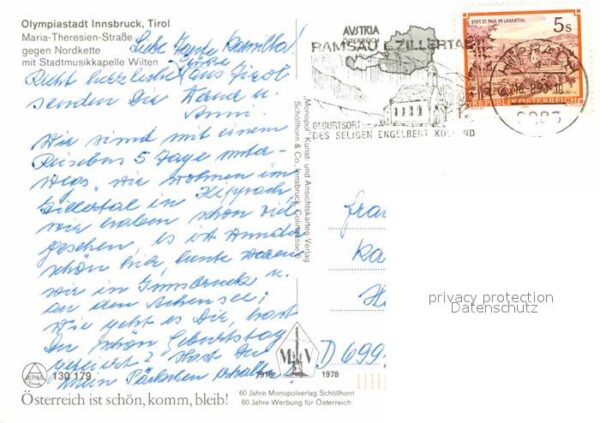 Olympiastadt Innsbruck, Tirol
Maria-Theresien-Straße
gegen Nordkette
mit Stadtmusikkapelle Wilten
Liebe
Grüße
Recht herzliche aus Tirol
senden Dir Hanna u.
Wir sind mit einem
Reisebus 5 Tage unter-
wegs, wir wohnen im
Zillertal in Hippach,
wir haben schon viel
gesehen, es ist wunder
schön hier, heute waren
wir in Innsbruck u.
an den Achensee;
Wie geht es Dir, hast
Du schön Geburtstag
gefeiert? Hast Du
mein Päckchen erhalten?
130 179
Österreich ist schön, komm, bleib!
Monopol Kunst- und Ansichtskarten Verlag
Schöllhorn & Co. Innsbruck
MV
1918 1978
60 Jahre Monopolverlag Schöllhorn
60 Jahre Werbung für Österreich
AUSTRIA
ÖSTERREICH
RAMSAU I. ZILLERTAL
GEBURTSORT
DES SELIGEN ENGELBERT KOLLAND
STIFT ST. PAUL IM LAVANTTAL
5s
REPUBLIK ÖSTERREICH
HIPPACH
D 699
privacy protection
Datenschutz